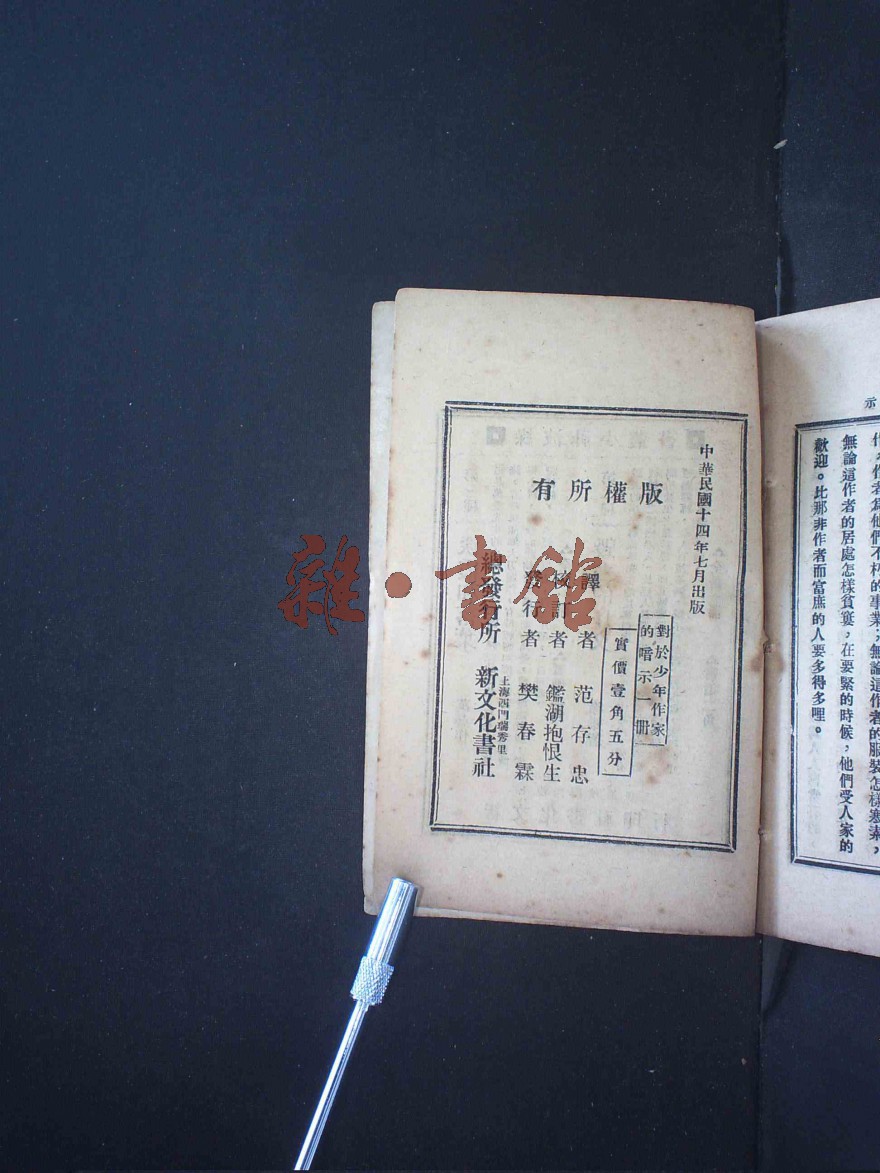 示
代，作者爲他們不朽的事業，無論這作者的服裝怎樣
無論這作者的居處怎樣貧窶，在要緊的時候，他們受人家的
歡迎。比那非作者而富庶的人要多得多哩。
中華民國十四年七月出版
版權所有
對於少年作家
的暗示一册
實價壹角五分
譯者 范存忠
校訂者 鑑湖抱恨生
發行者 樊春霖
總發行所 新文化書社
上海西門瑞秀里
雜·書館